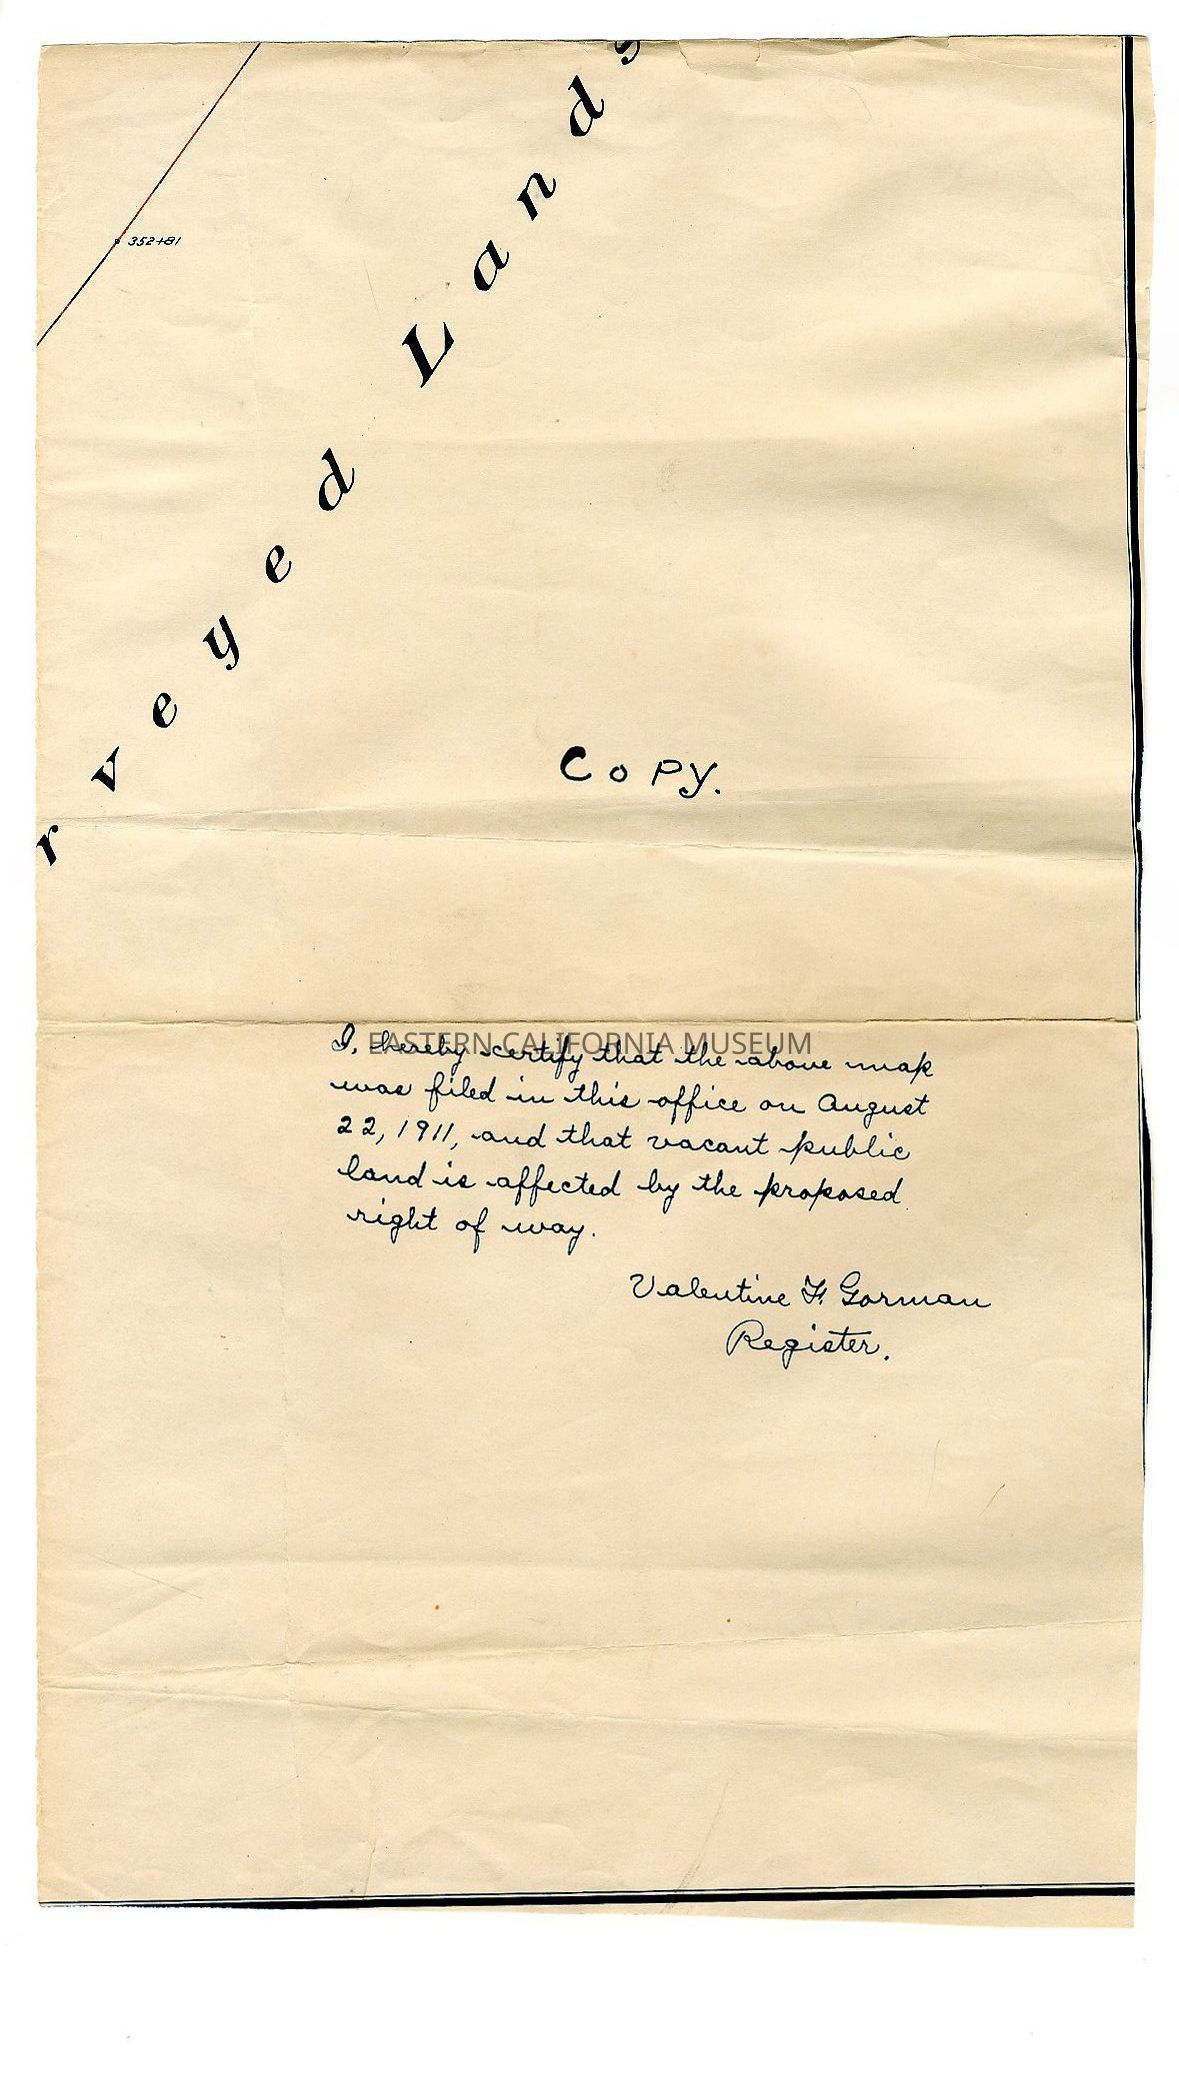 352+81
rveyed Lands
Copy.
EASTERN CALIFORNIA MUSEUM
I, hereby certify that the above map
was filed in this office on August
22, 1911, and that vacant public
land is affected by the proposed
right of way.
Valentine F. Gorman
Register.